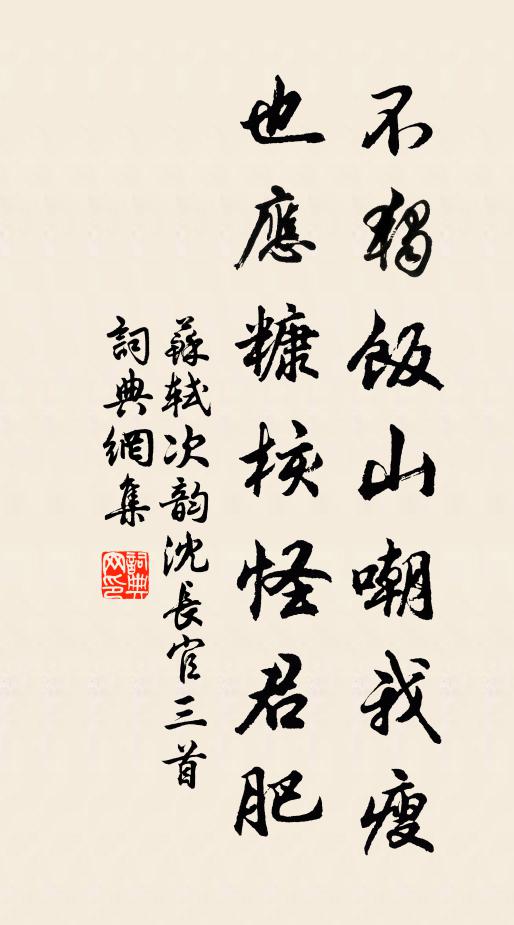 不獨飯山嘲我瘦
也應糠核怪君肥
蘇軾次韵沈長官三首
詞典網集
詞典网印